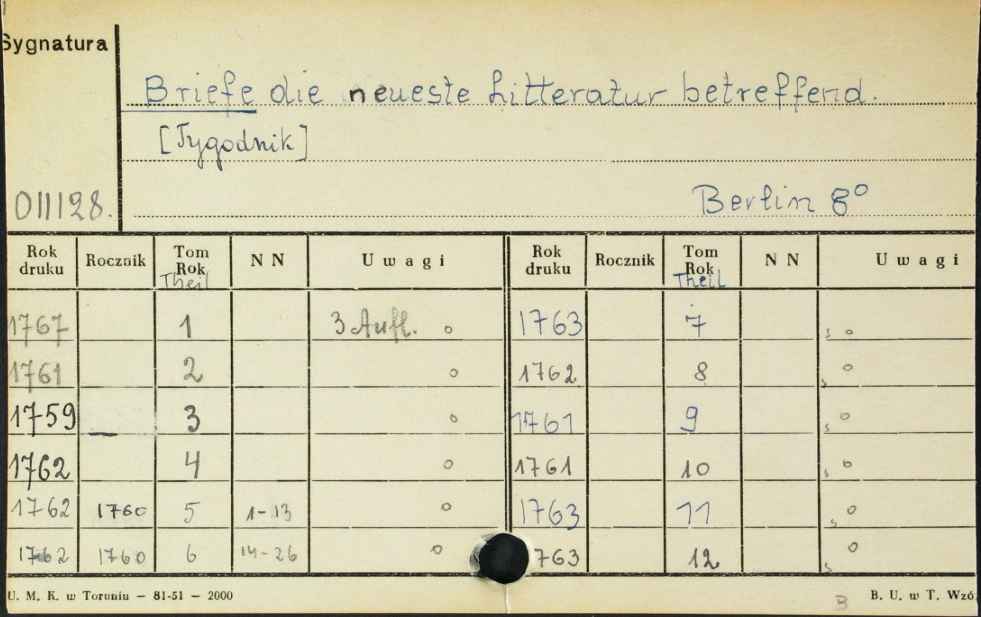 Sygnatura
Briefe die neueste Litteratur betreffend.
[Tygodnik]
011128.
Berlin 8°
Rok druku Rocznik Tom Rok Theil NN Uwagi Rok druku Rocznik Tom Rok Theil NN Uwagi
1767 1 3 Aufl. o 1763 7 , o
1761 2 o 1762 8 , o
1759 3 o 1761 9 , o
1762 4 o 1761 10 , o
1762 1760 5 1-13 o 1763 11 , o
1762 1760 6 14-26 o 1763 12 , o
U. M. K. w Toruniu — 81-51 — 2000
B
B. U. w T. Wzó